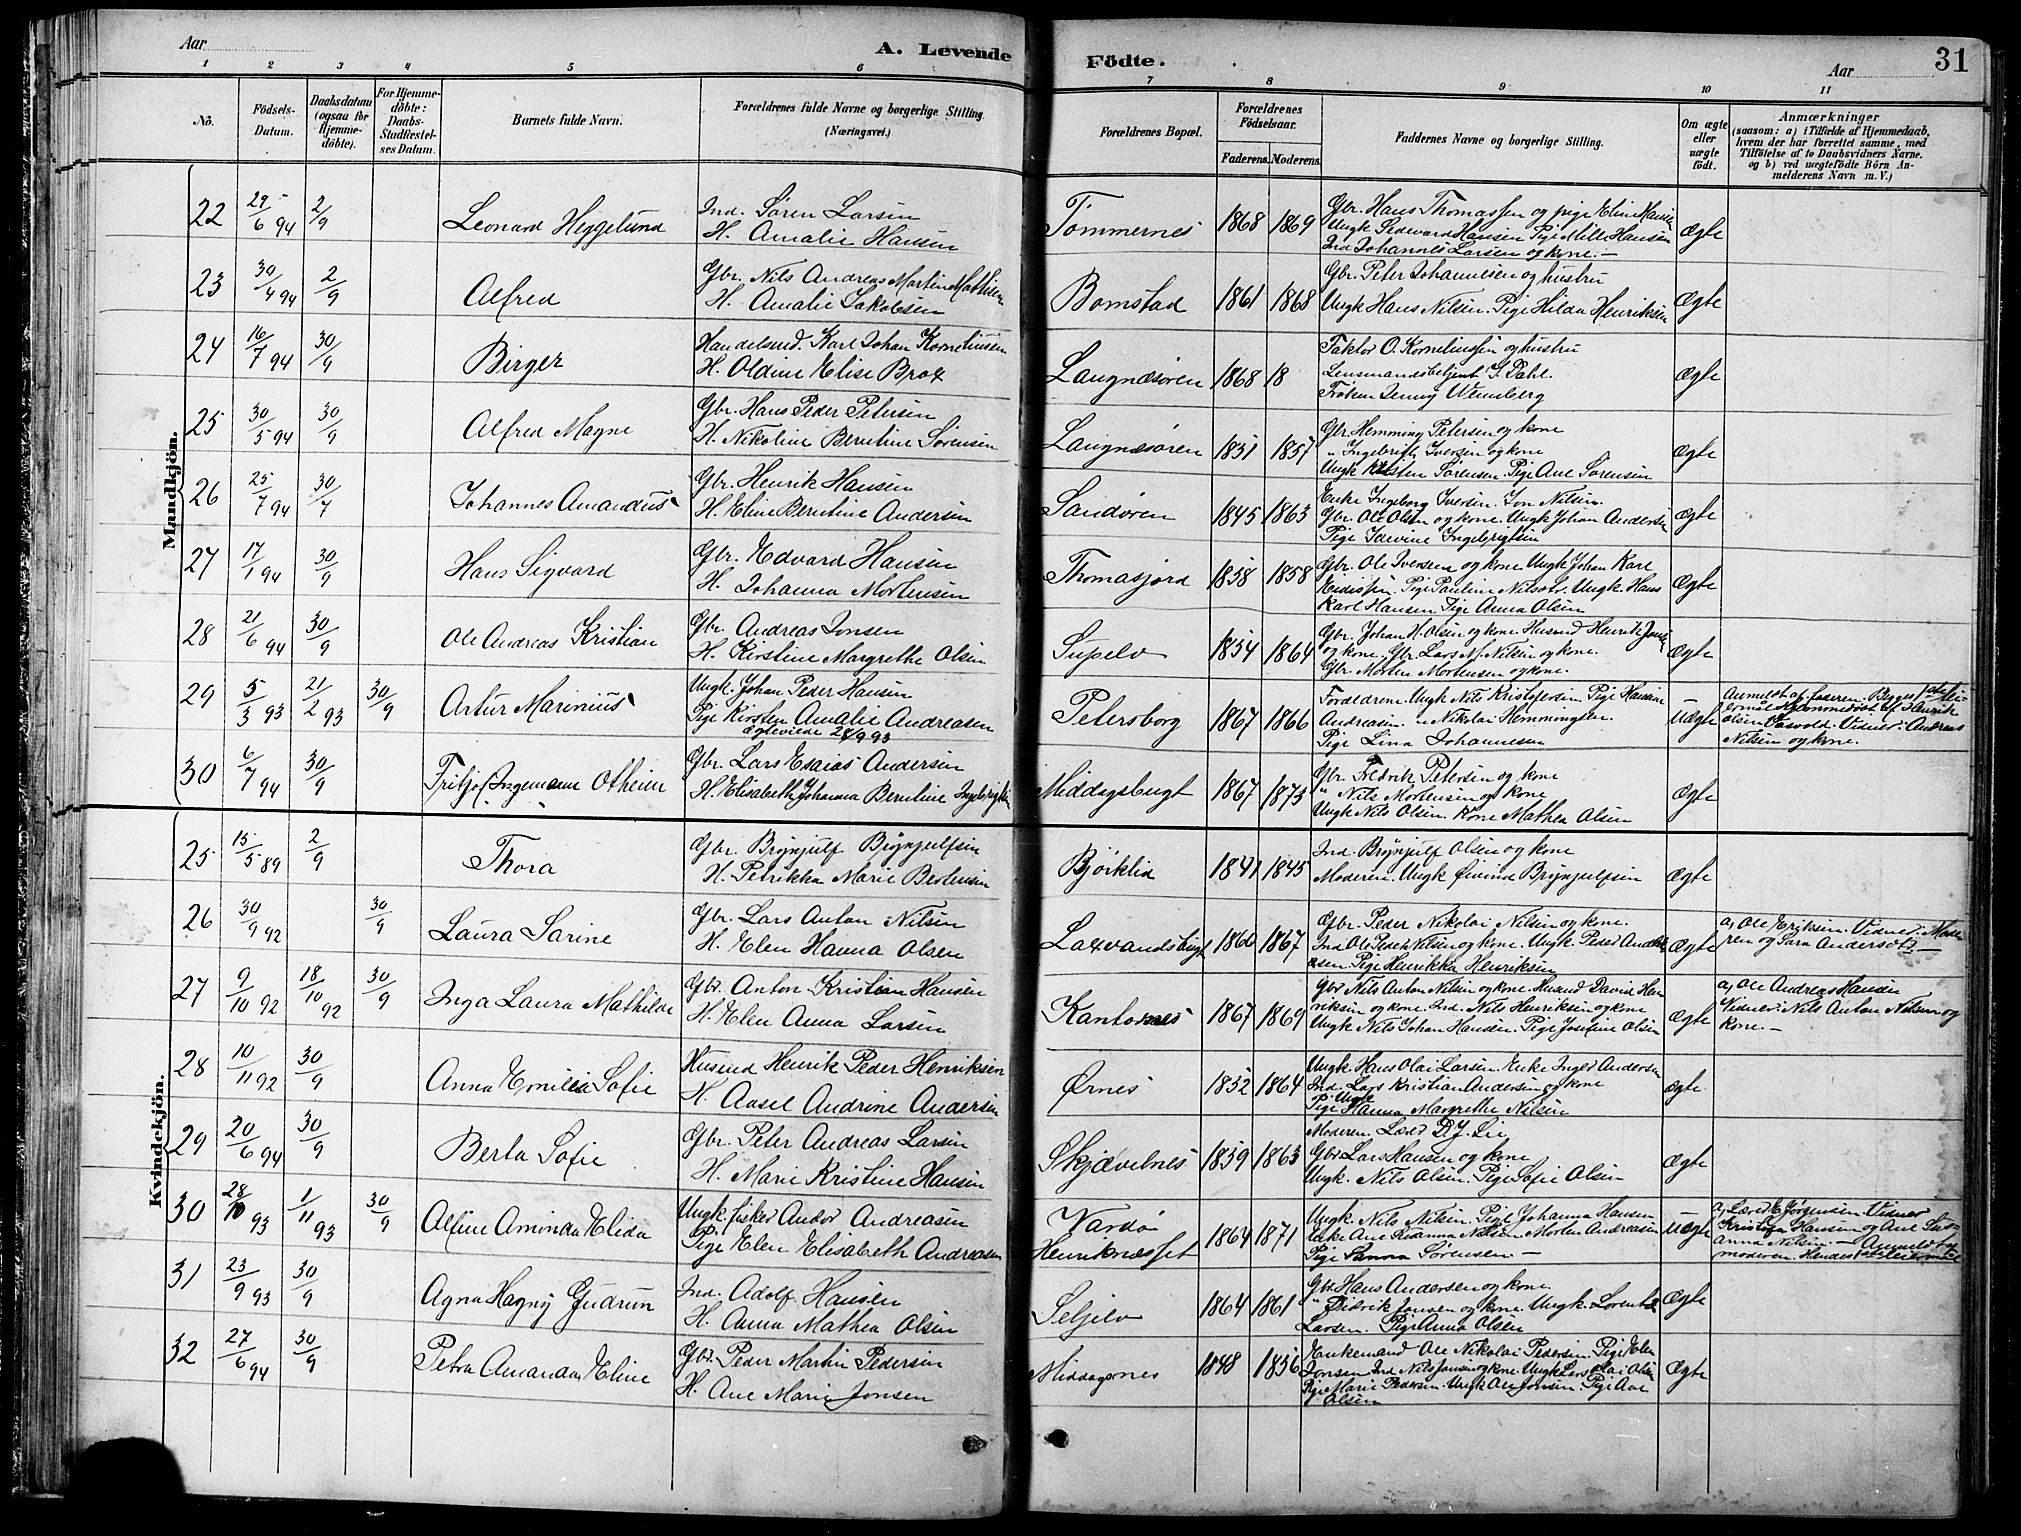 Aar
A. Levende
Födte.
Aar
31
1 2 3 4 5 6 7 8 9 10 11
No.
Födsels-
Datum.
Daabsdatum
(ogsaa for
Hjemme-
döbte).
For Hjemme-
döbte:
Daabs-
Stadfæstel-
ses Datum.
Barnets fulde Navn.
Forældrenes fulde Navne og borgerlige Stilling.
(Næringsvei.)
Forældrenes Bopæl.
Forældrenes
Födselsaar.
Faderens. Moderens.
Faddernes Navne og borgerlige Stilling.
Om ægte
eller
uægte
født.
Anmærkninger
(saasom: a) i Tilfælde af Hjemmedaab,
hvem der har forrettet samme, med
Tilföielse af to Daabsvidners Navne.
og b) ved uægtefödte Börn An-
melderens Navn m. V.)
Mandkjön.
22 29/6 94 2/9 Leonard Heggelund
Ind. Sören Larsen
H. Amalie Hansen
Tömmernes 1868 1869
Gbr. Hans Thomassen og pige Eline Hansen
Ungk Pedevard Hansen Pige Mille Hansen
Ind Johannes Larsen og kone.
Ægte
23 30/4 94 2/9 Alfred
Gbr. Nils Andreas Martin Mathisen
H. Amalie Jakobsen
Bomstad 1861 1868
Gbr. Peter Johannesen og hustru
Ungk Hans Nilsen. Pige Hilda Henriksen
Ægte
24 16/7 94 30/9 Birger
Handelsmd. Karl Johan Korneliusen
H. Oldine Elise Brox
Laugnæsören 1868 18
Faktor O. Korneliussen og hustru
Lensmandsbetjent S. Dahl.
Fröken Jenny Wennberg
Ægte
25 30/5 94 30/9 Alfred Magne
Gbr. Hans Peder Petersen
H. Nikoline Berntine Sörensen
Laugnæsören 1851 1857
Gbr Hemming Petersen og kone
" Ingebrigt Iversen og kone
Ungk Kasten Sörensen. Pige Ane Sörensen
Ægte
26 25/7 94 30/7 Johannes Amandus
Gbr. Henrik Hansen
H. Eline Berntine Andersen
Sandören 1845 1863
Enke Ingeborg Iversen. Jon Nilsen.
Gbr. Ole Olsen og kone. Ungk Johan Andersen
Pige Idevine Ingebrigtsen
Ægte
27 17/1 94 30/9 Hans Sigvard
Gbr. Edvard Hansen
H. Johanna Mortensen
Thomasjord 1858 1858
Gbr. Ole Iversen og kone Ungk Johan Karl
Eidissen. Pige Pauline Nilsdtr. Ungk. Hans
Karl Hansen Pige Anna Olsen
Ægte
28 21/6 94 30/9 Ole Andreas Kristian
Gbr. Andreas Jonsen
H. Kirstine Margrethe Olsen
Supelv 1854 1864
Gbr. Johan H. Olsen og kone. Husmd Henrik Jonsen
og kone. Gbr. Lars M. Nilsen og kone.
Gbr. Morten Mortensen og kone.
Ægte
29 5/3 93 21/2 93 30/9 Artur Marinius
Ungk. Johan Peder Hansen
Pige Kirsten Amalie Andreasen
Ægteviede 28/9 93
Petersborg 1867 1866
Foreldrene. Ungk Nils Kristofersen. Pige Hansine
Andreasen. " Nikolai Hemmingsen.
Pige Lina Johannesen
Uægte
Anmeldt af faderen. Begges 1ste lei-
ermål Hjemmedöbt af Henrik
Olsen Vasvold. Vidner. Andreas
Nilsen og kone.
30 6/7 94 30/9 Fritjof Ingemann Otheim
Gbr. Lars Esaias Andersen
H. Elisabeth Johanna Berntine Ingebrigtsen
Middagsbugt 1867 1873
Gbr. Fredrik Petersen og kone
" Nils Mortensen og kone
Ungk Nils Olsen. Kone Mathea Olsen
Ægte
Kvindekjön.
25 15/5 89 2/9 Thora
Gbr. Brynjulf Brynjulfsen
H. Petrikka Marie Bertensen
Björklid 1841 1845
Ind. Brynjulf Olsen og kone
Moderen. Ungk Øivind Brynjulfsen
Ægte
26 30/9 92 30/9 Laura Sarine
Gbr. Lars Anton Nilsen
H. Elen Hanna Olsen
Laxvandsbugt 1860 1867
Gbr. Peder Nikolai Nilsen og kone.
Ind Ole Peder Nilsen og kone. Ungk. Peder Andrea
sen. Pige Henrikka Henriksen
Ægte
a, Ole Eriksen. Vidner. Mode
ren og Sara Andersdtr
27 9/10 92 18/10 92 30/9 Inga Laura Mathilde
Gbr. Anton Kristian Hansen
H. Elen Anna Larsen
Kantornes 1867 1869
Gbr Nils Anton Nilsen og kone. Husmd David Hen
riksen og kone. Ind. Nils Henriksen og kone
Ungk Nils Johan Hansen. Pige Josefine Olsen
Ægte
a, Ole Andreas Hansen
Vidner: Nils Anton Nilsen og
kone.
28 10/11 92 30/9 Anna Emilie Sofie
Husmd Henrik Peder Henriksen
H. Aasel Andrine Andersen
Ørnes 1832 1864
Ungk Hans Olai Larsen. Enke Inger Andersen
Ind. Lars Kristian Andersen og kone
Pige Hanna Margrethe Nilsen
Ægte
29 20/6 94 30/9 Berta Sofie
Gbr. Peter Andreas Larsen
H. Marie Kristine Hansen
Skjævelnes 1839 1863
Moderen. Lærer D. J. Lie
Gbr Lars Hansen og kone
Ungk. Nils Olsen. Pige Sofie Olsen
Ægte
30 28/10 93 1/11 93 30/9 Alfine Aminda Elida
Ungk. fisker Andor Andreasen
Pige Elen Elisabeth Andreasen
Vardö
Henriknæsset 1864 1871
Ungk. Nils Nilsen. Pige Johanna Hansen
Enke Ane Susanna Nilsen Morten Andreasen
Pige Sanna Sörensen
Uægte
a, Lærer E. Jörgensen Vidner
Kristofa Hansen og Ane Sus-
anna Nilsen. Anmeldt af
moderen. Hendes 1ste leiermål
31 23/9 93 30/9 Agna Hagny Gudrun
Ind. Adolf Hansen
H. Anna Mathea Olsen
Seljelv 1864 1861
Gbr Hans Andersen og kone.
" Didrik Jonsen og kone. Ungk. Lorents
Larsen. Pige Anna Olsen
Ægte
32 27/6 94 30/9 Petra Amanda Eline
Gbr. Peder Martin Pedersen
H. Ane Marie Jonsen
Middagsnes 1848 1856
Enkemand Ole Nikolai Pedersen. Pige Elen
Jonsen Ind Nils Jonsen og kone. Ungk Lars Olai Olsen
Pige Marie Pedersen. Ungk Ole Jonsen. Pige Ane
Olsen
Ægte